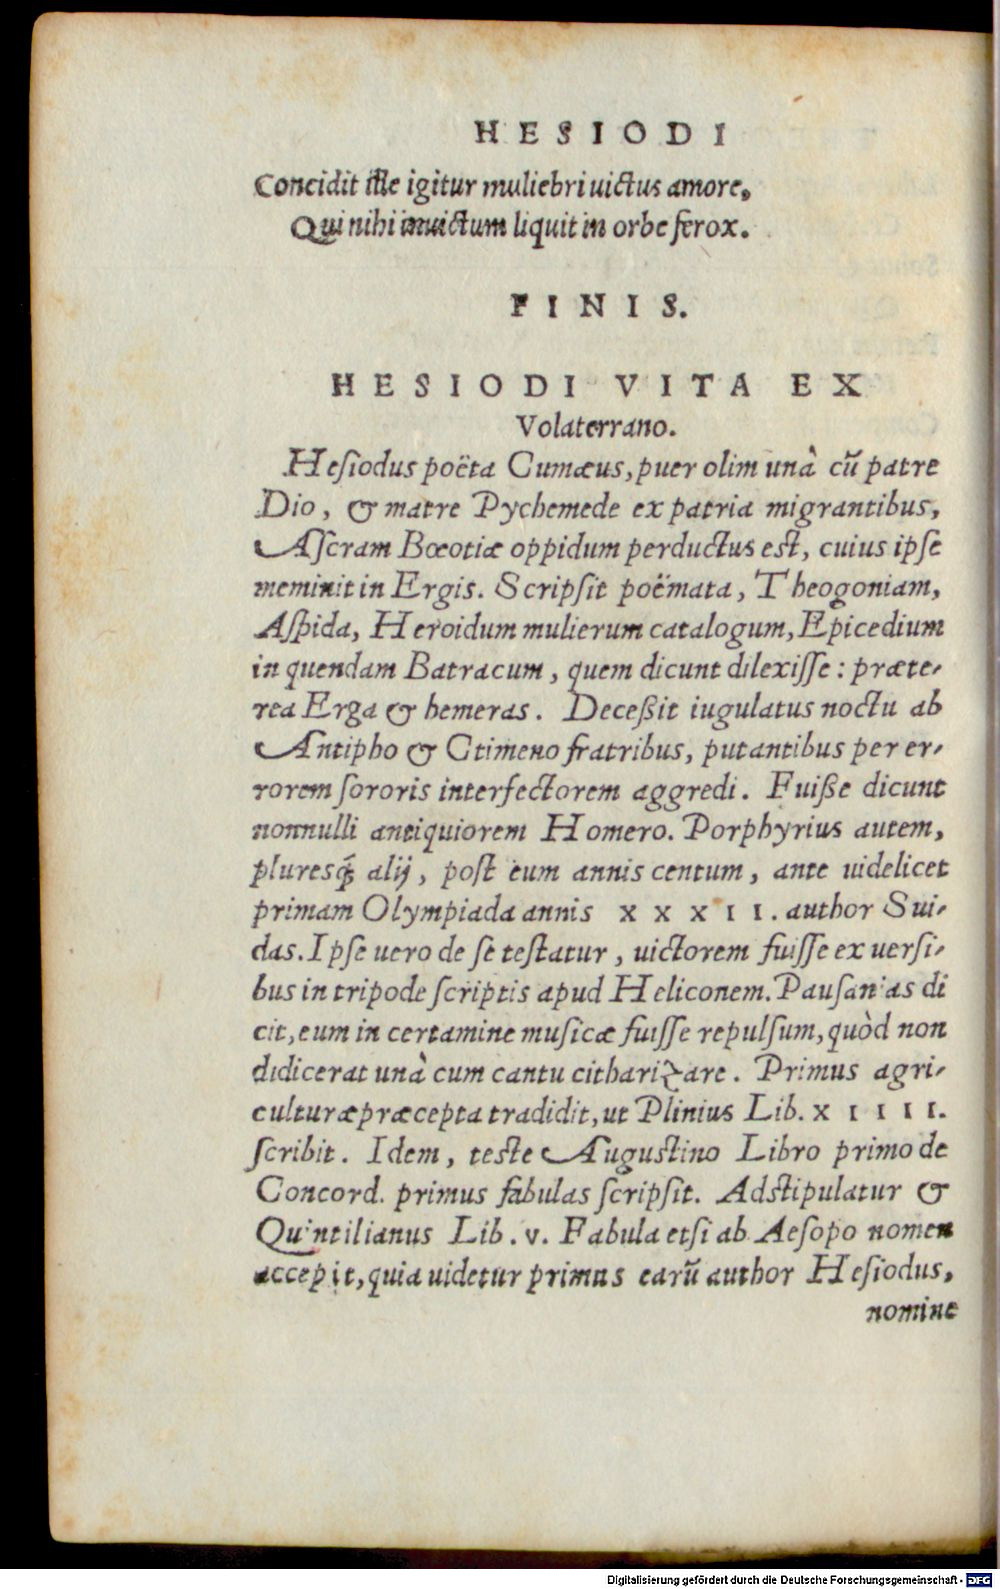 HESIODI
Concidit ille igitur muliebri uictus amore,
Qui nihi inuictum liquit in orbe ferox.
FINIS.
HESIODI VITA EX
Volaterrano.
Hesiodus poëta Cumæus, puer olim unà cū patre
Dio, & matre Pychemede ex patria migrantibus,
Ascram Bœotiæ oppidum perductus est, cuius ipse
meminit in Ergis. Scripsit poëmata, Theogoniam,
Aspida, Heroidum mulierum catalogum, Epicedium
in quendam Batracum, quem dicunt dilexisse: præte-
rea Erga & hemeras. Deceßit iugulatus noctu ab
Antipho & Ctimeno fratribus, putantibus per er-
rorem sororis interfectorem aggredi. Fuiße dicunt
nonnulli antiquiorem Homero. Porphyrius autem,
pluresq́; alij, post eum annis centum, ante uidelicet
primam Olympiada annis XXXII. author Sui-
das. Ipse uero de se testatur, uictorem fuisse ex uersi-
bus in tripode scriptis apud Heliconem. Pausanias di
cit, eum in certamine musicæ fuisse repulsum, quòd non
didicerat unà cum cantu citharizare. Primus agri-
culturæ præcepta tradidit, ut Plinius Lib. XIIII.
scribit. Idem, teste Augustino Libro primo de
Concord. primus fabulas scripsit. Adstipulatur &
Quintilianus Lib. v. Fabula etsi ab Aesopo nomen
accepit, quia uidetur primus earū author Hesiodus,
nomine
Digitalisierung gefördert durch die Deutsche Forschungsgemeinschaft - DFG